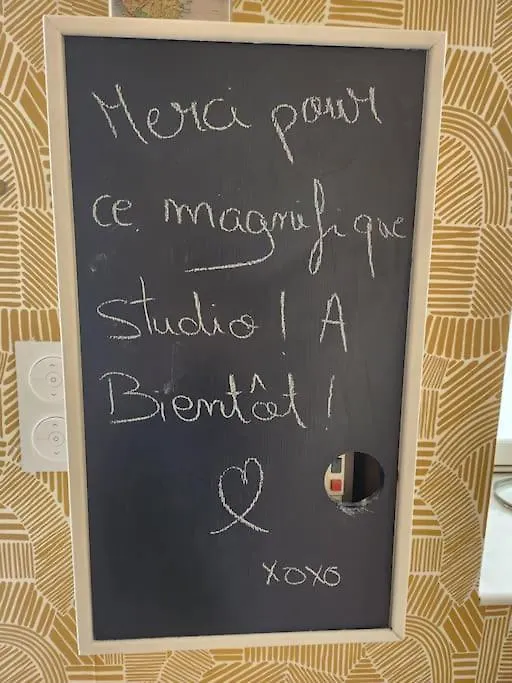 Merci pour
ce magnifique
Studio ! A
Bientôt !
xoxo